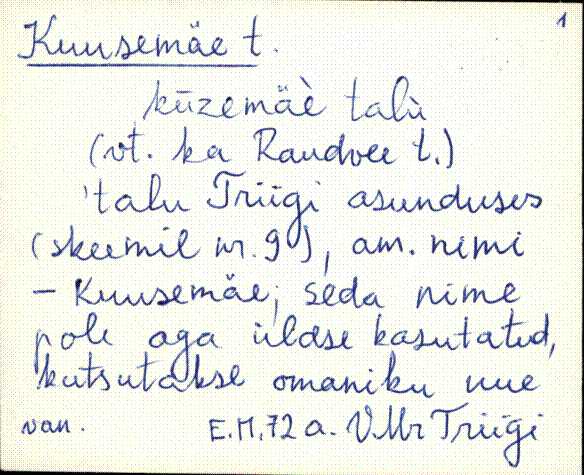 1
Kuusemäe t.
kūzemäè talù
(vt. ka Raudvee t.)
'talu Triigi asunduses
(skeemil nr. 9), am. nimi
- Kuusemäe; seda nime
pole aga üldse kasutatud,
kutsutakse omaniku nue
van. E.M. 72 a. V.Mr Triigi